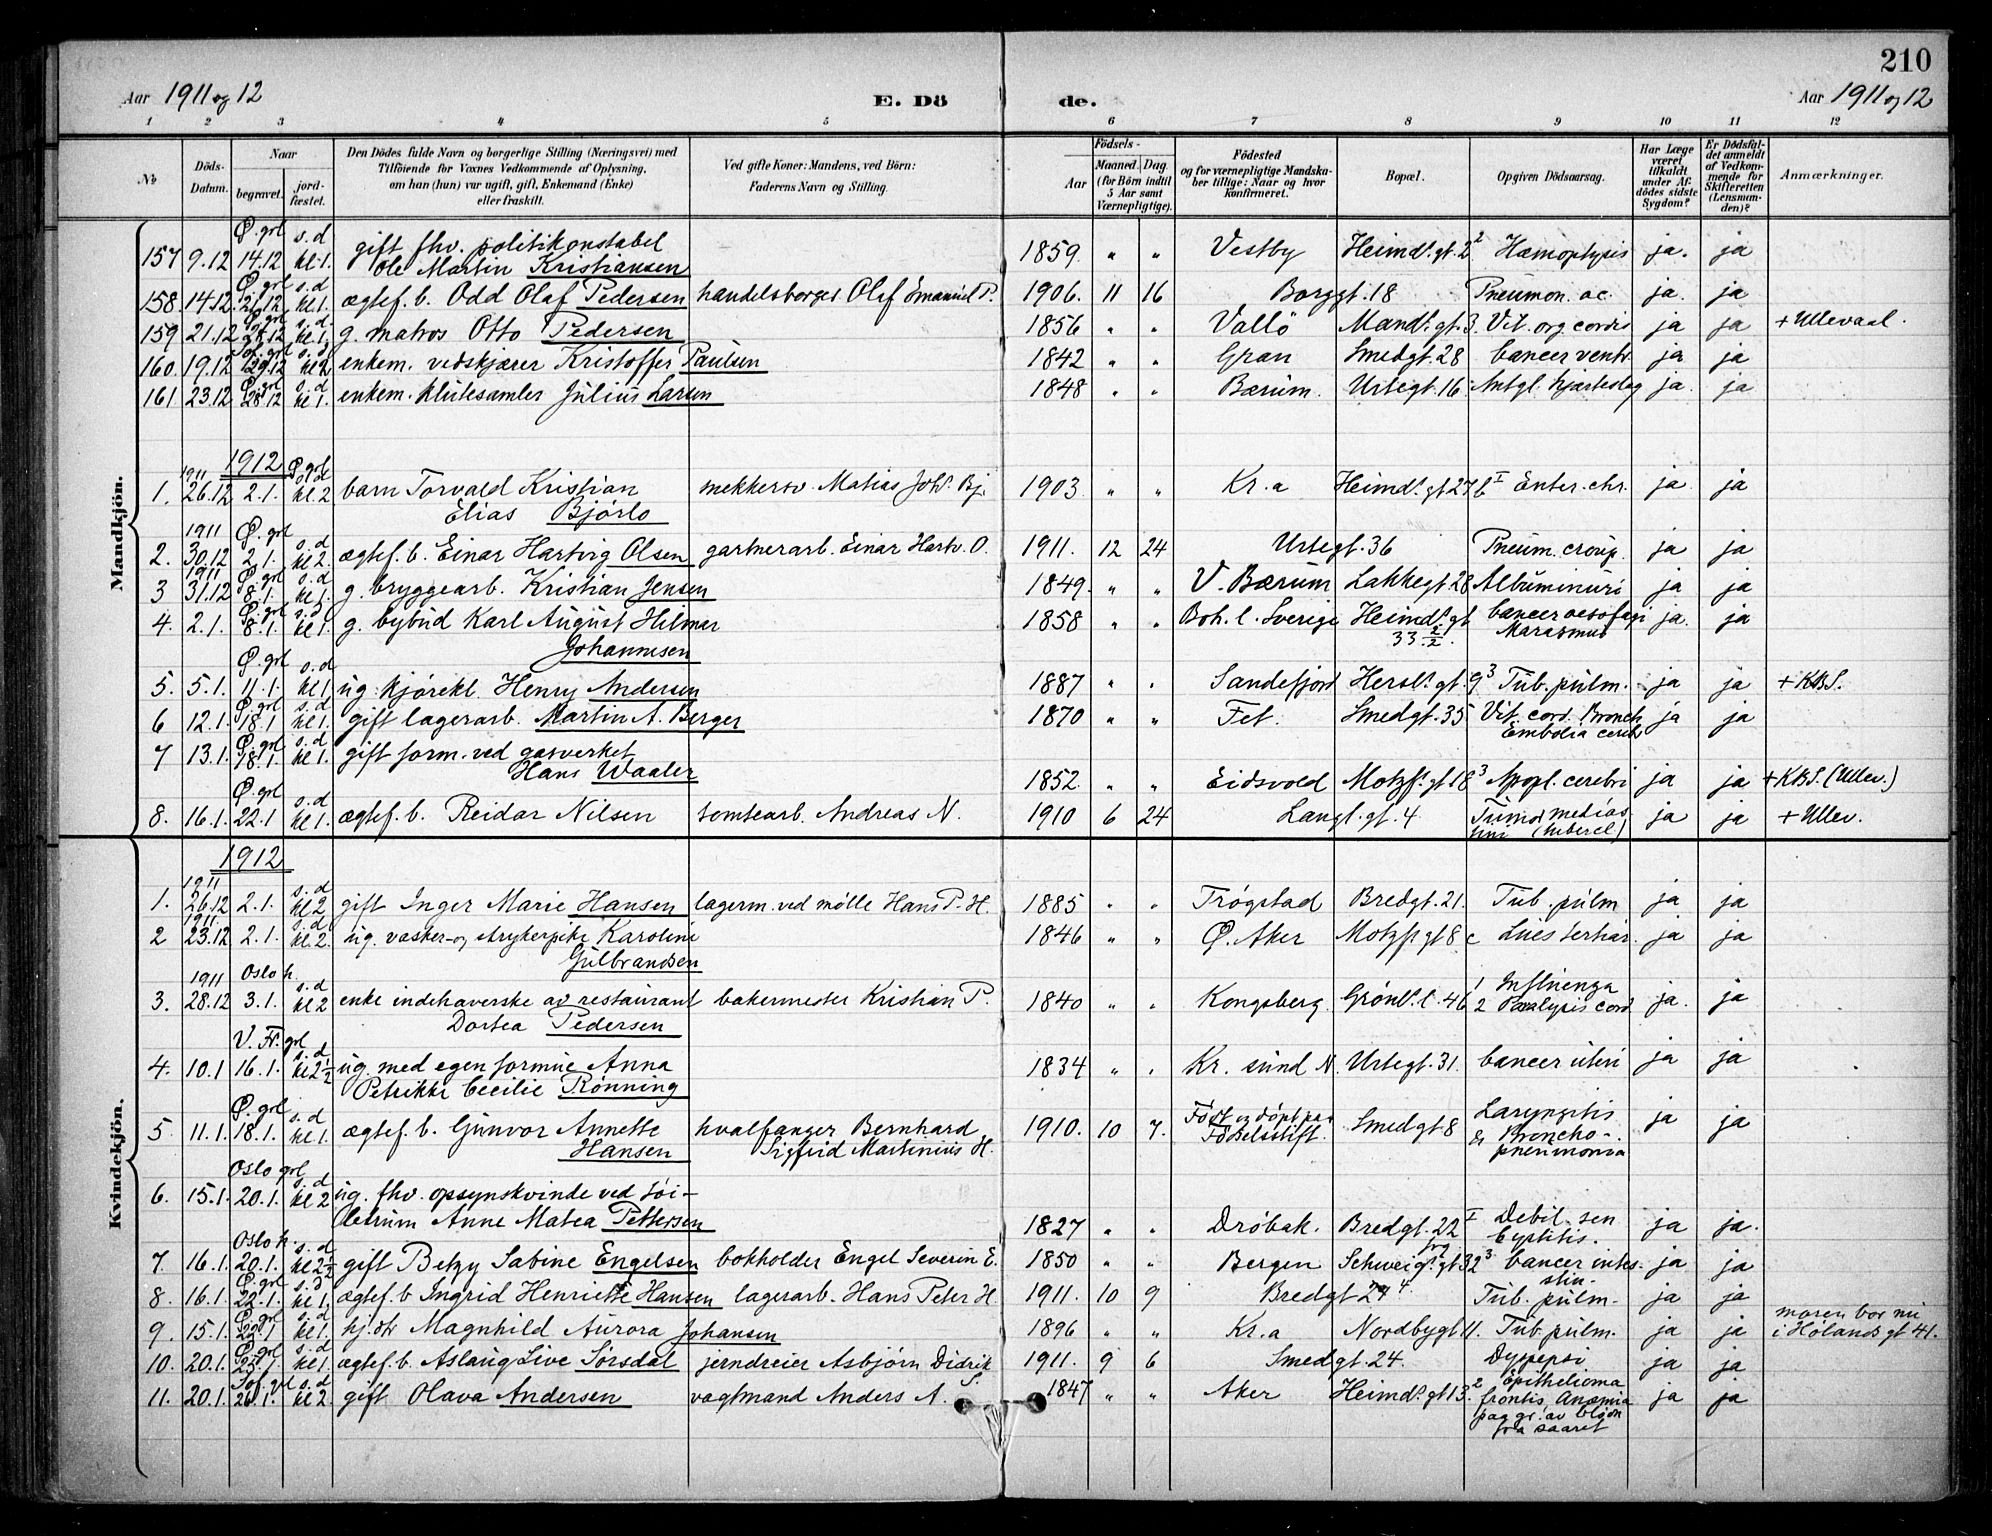 210
Aar 1911 og 12 E. Dö de. Aar 1911 og 12
1 2 3 4 5 6 7 8 9 10 11 12
№ Döds-Datum. Naar begravet. jord-fæstet. Den Dödes fulde Navn og borgerlige Stilling (Næringsvei) med Tilföiende for Voxnes Vedkommende af Oplysning, om han (hun) var ugift, gift, Enkemand (Enke) eller fraskilt. Ved gifte Koner: Mandens, ved Börn: Faderens Navn og Stilling. Födsels- Aar Maaned. Dag. (for Börn indtil 5 Aar samt Værnepligtige). Födested og for værnepligtige Mandska-ber tillige: Naar og hvor konfirmeret. Bopæl. Opgiven Dödsaarsag. Har Læge været tilkaldt under Af-dödes sidste Sygdom? Er Dödsfal-det anmeldt af Vedkom-mende for Skifteretten (Lensman-den)? Anmærkninger.
Mandkjön.
Ø. grl s. d
157 9.12 14.12 kl 1. gift fhv. politikonstabel
Ole Martin Kristiansen 1859 " " Vestby Heimd. gt. 2² Hæmoptysis ja. ja
Ø. grl s. d
158. 14.12 kl 1. ægtef. b. Odd Olaf Pedersen handelsborger Olaf Emanuel P. 1906. 11 16 Borggt. 18 Pneumon. ac. ja. ja
159 21.12 kl 1. g. matros Otto Pedersen 1856 " " Vallö Mand. gt. 3. Vit. org. cordis ja ja + Ullevaal.
160. 19.12 29.12 kl 2 enkem. vedskjærer Kristoffer Paulsen 1842 " " Gran Smedgt. 28 Cancer ventr. ja ja
Ø. grl s. d
161 23.12 28.12 kl 1. enkem. klutesamler Julius Larsen 1848 " " Bærum. Urtegt. 16. Antgl. hjærteslag ja. ja
1912
1911 Ø. grl
1. 26.12 2.1. kl. 2 barn Torvald Kristian mekkersv. Matias Joh. Bj. 1903 " " Kr.a Heimd. gt 27 b I Enter. chr. ja ja
Elias Bjørlo
1911 Ø. grl s. d
2. 30.12 2.1. kl 2. ægtef. b. Einar Hartvig Olsen gartnerarb. Einar Hartv. O. 1911. 12 24 Urtegt. 36 Pneum. croup. ja ja
1911 Ø. grl s. d
3 31.12 8.1. kl 1. g. bryggearb. Kristian Jensen 1849. " " V. Bærum Lakkegt. 28 Albuminuri ja ja
Ø. grl s. d
4. 2.1. 8.1. kl 1. g. bybud Karl August Hilmar 1858 " " Boh. l. Sverige Heimd. gt 33 Cancer oesofagi ja. ja
Johannesen Marasmus
Ø. grl s. d
5. 5.1. 11.1. kl 1. ug. kjørekl. Henry Andersen 1887 " " Sandefjord Hersl. gt. 9³ Tub. pulm. ja ja + KBS.
Ø. grl s. d
6 12.1. 18.1 kl 1. gift lagerarb. Martin A. Berger 1870 " " Fet. Smedgt. 35 Vit. cord. Bronch. ja ja
Embolia cereb.
Ø. grl s. d
7 13.1. 18.1. kl 1. gift form. ved gasverket
Hans Waaler 1852. " " Eidsvold Motzf. gt 18³ Apopl. cerebri ja ja + KBS. (Ullev.)
Ø. grl s. d
8. 16.1. 22.1 kl 1. ægtef. b. Reidar Nilsen tomtearb. Andreas N. 1910 6 24 Langl. gt. 4 Tumor medias- ja ja + Ullev.
tini (tubercl)
Kvindekjön.
1912
1911 s. d
1. 26.12 2.1. kl 2 gift Inger Marie Hansen lagerm. ved mølle Hans P. H. 1885 " " Trøgstad Bredgt. 21. Tub. pulm ja ja
1911 s. d
2 23.12 2.1. kl. 2. ug. vasker- og strykerpike Karoline 1846 " " Ø. Aker Motzf. gt 8 c Lues tertiar. ja ja
Gulbrandsen
1911 Oslo k. s. d
3. 28.12 3.1. kl 2 enke indehaverske av restaurant bakermester Kristian P. 1840 " " Kongsberg Grønl. l. 46 1 Influenza ja. ja
Dortea Pedersen 2 Paralysis cord
V. Fr. grl s. d
4. 10.1 16.1. kl 2½ ug. med egen formue Anna 1834 " " Kr. sund N. Urtegt. 31. Cancer uteri ja ja
Petrikke Cecilie Rønning
Ø. grl s. d
5 11.1. 18.1. kl 1. ægtef. b. Gunvor Annette hvalfanger Bernhard 1910. 10 7. Født og døpt paa Fødselsstift. Smedgt 8 Laryngitis ja ja
Hansen Sigfrid Martinius H. & Broncho-
pneumonia
Oslo grl s. d
6. 15.1. 20.1. kl 2 ug. fhv. opsynskvinde ved Tøi-
Anne Matea Pettersen 1827 " " Drøbak. Bredgt. 22 I Debil. sen ja ja.
Cystitis.
Oslo k. s. d
7. 16.1. 20.1. kl 2½ gift Betzy Sabine Engelsen bokholder Engel Severin E. 1850 " " Bergen Schweig. gt 32³. Cancer intes- ja ja
stin-
Ø. grl s. d
8. 16.1. 22.1. kl 1. ægtef. b Ingrid Henriette Hansen lagerarb. Hans Peter H. 1911. 10 9 Bredgt 27⁴ Tub. pulm- ja ja
Ø. grl s. d
9. 15.1. 22.1 kl 1. hj. dtr Magnhild Aurora Johansen 1896 " " Kr.a Nordbygt 11. Tub. pulm. ja ja moren bor nu
i Hølands gt 41.
Ø. grl s. d
10. 20.1. kl 1. ægtef. b. Aslaug Live Sørsdal jerndreier Asbjørn Didrik S. 1911. 9 6 Smedgt. 24. Dyspepsi ja ja
s. d
11. 20.1. kl 2. gift Olava Andersen vagtmand Anders A. 1847 " " Aker Heimd. gt 13.² Epithelioma ja ja
frontis Anæmia
paa gr. av blødn